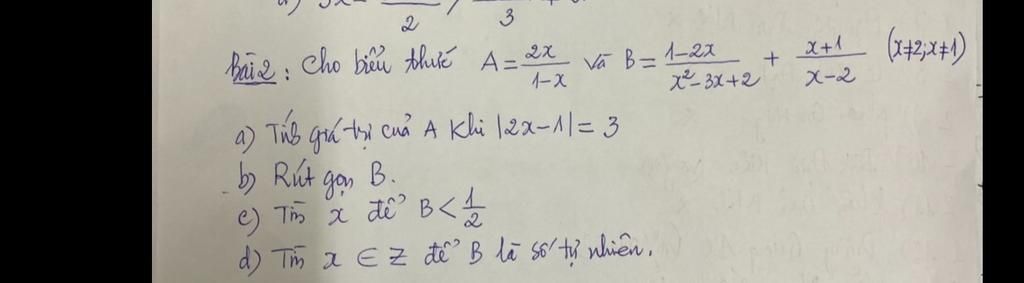 2 3
Bài 2: Cho biểu thức A = 2x/(1-x) và B = (1-2x)/(x²-3x+2) + (x+1)/(x-2) (x≠2; x≠1)
a) Tính giá trị của A khi |2x-1| = 3
b) Rút gọn B.
c) Tìm x để B < 1/2
d) Tìm x ∈ Z để B là số tự nhiên.